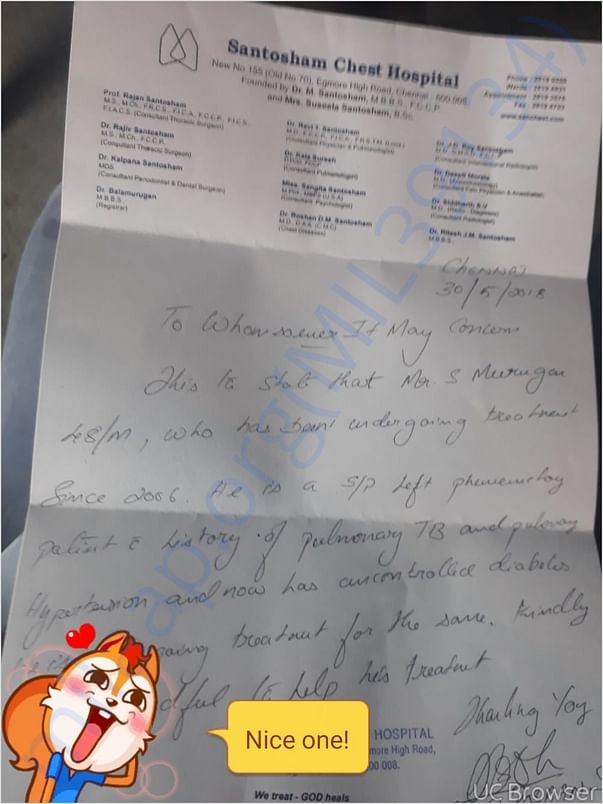 Santosham Chest Hospital
New No.155 (Old No 70), Egmore High Road, Chennai - 600 008.
Founded by Dr. M. Santosham, M.B.B.S., F.C.C.P.
and Mrs. Suseela Santosham, B.Sc.
www.sanchest.com
Prof. Rajan Santosham
(Consultant Thoracic Surgeon)
Dr. Rajiv Santosham
M.S., M.Ch., F.C.C.P.,
(Consultant Thoracic Surgeon)
Dr. Kalpana Santosham
MDS.
(Consultant Periodontist & Dental Surgeon)
Dr. Balamurugan
M.B.B.S.,
(Registrar)
Dr. Ravi T. Santosham
(Consultant Physician & Pulmonologist)
(Consultant Pulmonologist)
Miss. Sangita Santosham
(Consultant Psychologist)
Dr. Roshan D.M. Santosham
(Chest Diseases)
Dr. J.D. Roy Santosham
(Consultant Interventional Radiologist)
(Consultant Pain Physician & Anaesthetist)
Dr. Siddharth S.V
(Consultant Radiologist)
Dr. Ritesh J.M. Santosham
M.B.B.S.,
Chennai
30/5/2018
To Whomsoever It May Concern
This is to state that Mr. S. Murugan
48/M, who has been undergoing treatment
Since 2006. He is a S/P left
patient c history of pulmonary TB and
Hypertension and now has uncontrolled diabetes
treatment for the same. Kindly
to help his treatment
Thanking You
HOSPITAL
more High Road,
00 008.
We treat - GOD heals
Nice one!
UC Browser